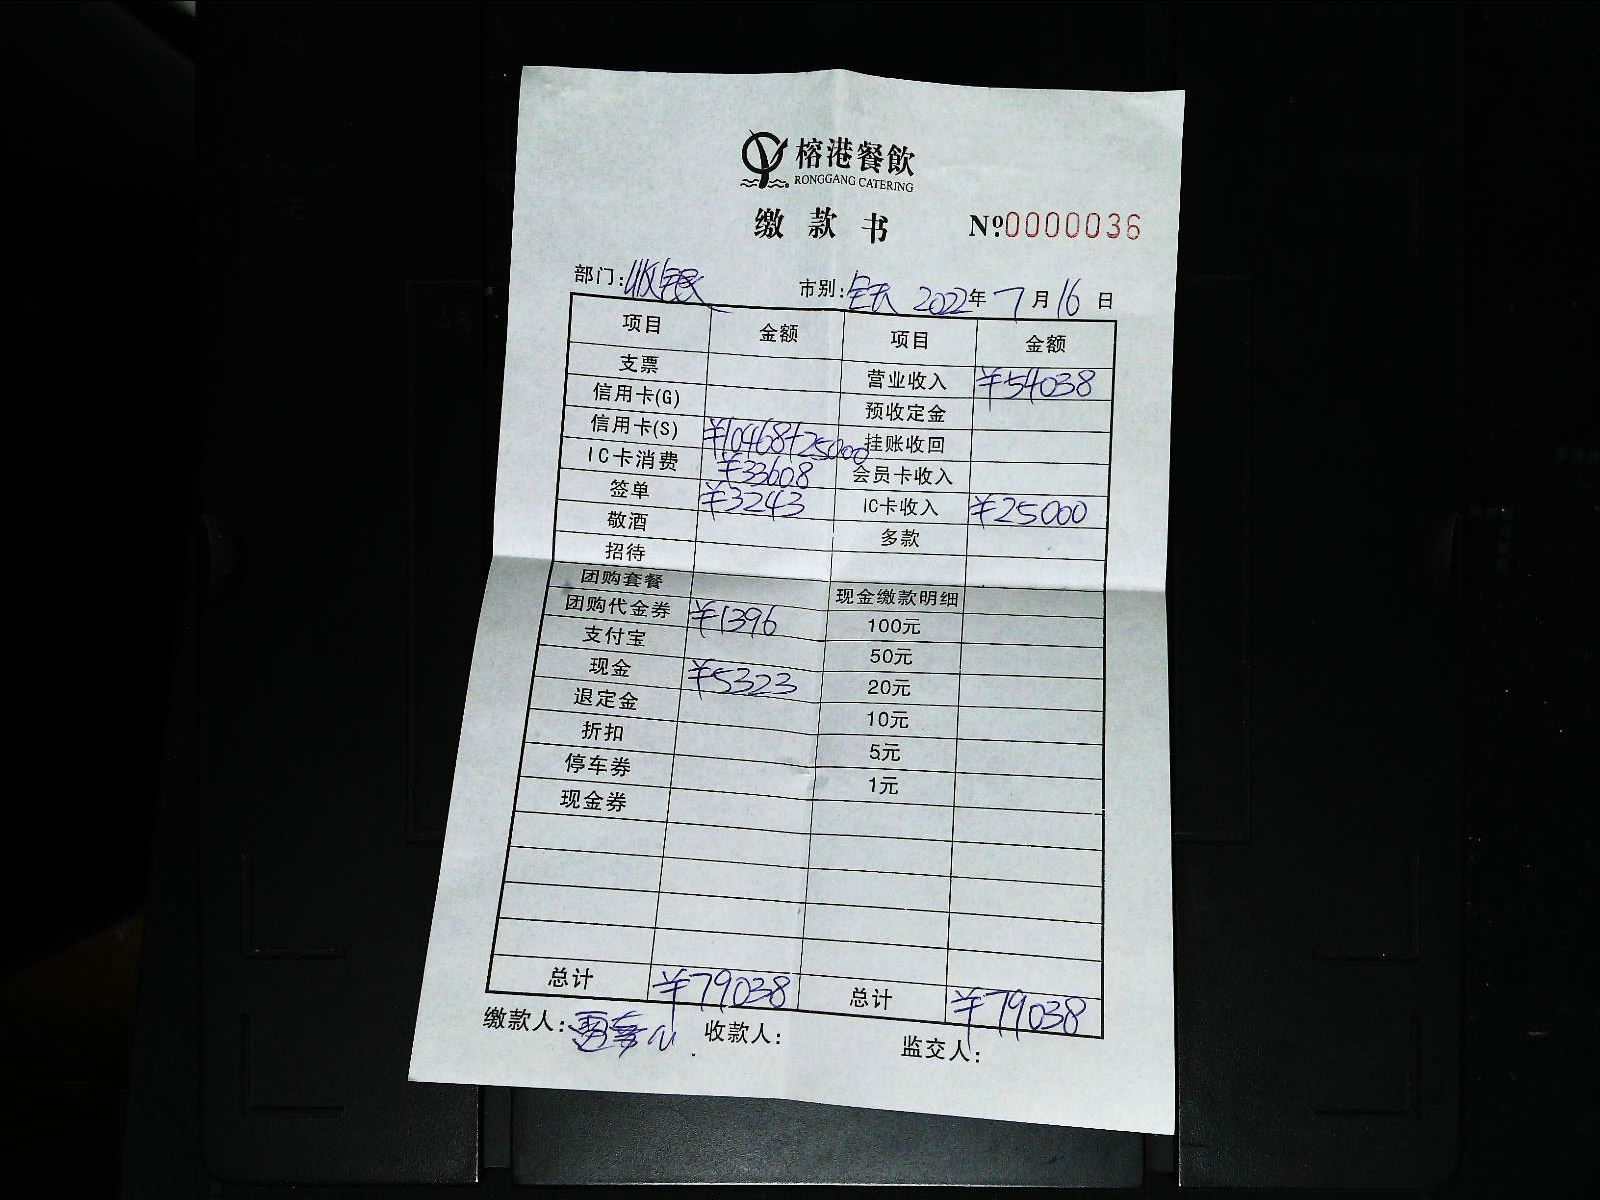 榕港餐飲
RONGGANG CATERING
缴款书 Nº:0000036
部门:收银 市别:全天 2022年7月16日
项目 金额 项目 金额
支票 营业收入 ¥54038
信用卡(G) 预收定金
信用卡(S) ¥10468+25000 挂账收回
IC卡消费 ¥33608 会员卡收入
签单 ¥3243 IC卡收入 ¥25000
敬酒 多款
招待
团购套餐 现金缴款明细
团购代金券 ¥1396 100元
支付宝 50元
现金 ¥5323 20元
退定金 10元
折扣 5元
停车券 1元
现金券
总计 ¥79038 总计 ¥79038
缴款人: 收款人: 监交人: